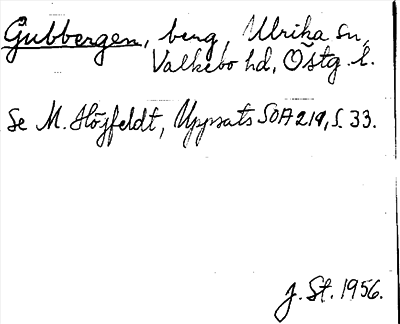 Gubbergen, berg, Ulrika sn,
Valkebo hd, Östg. l.
Se M. Höjfeldt, Uppsats SOA 219, s. 33.
J. St. 1956.